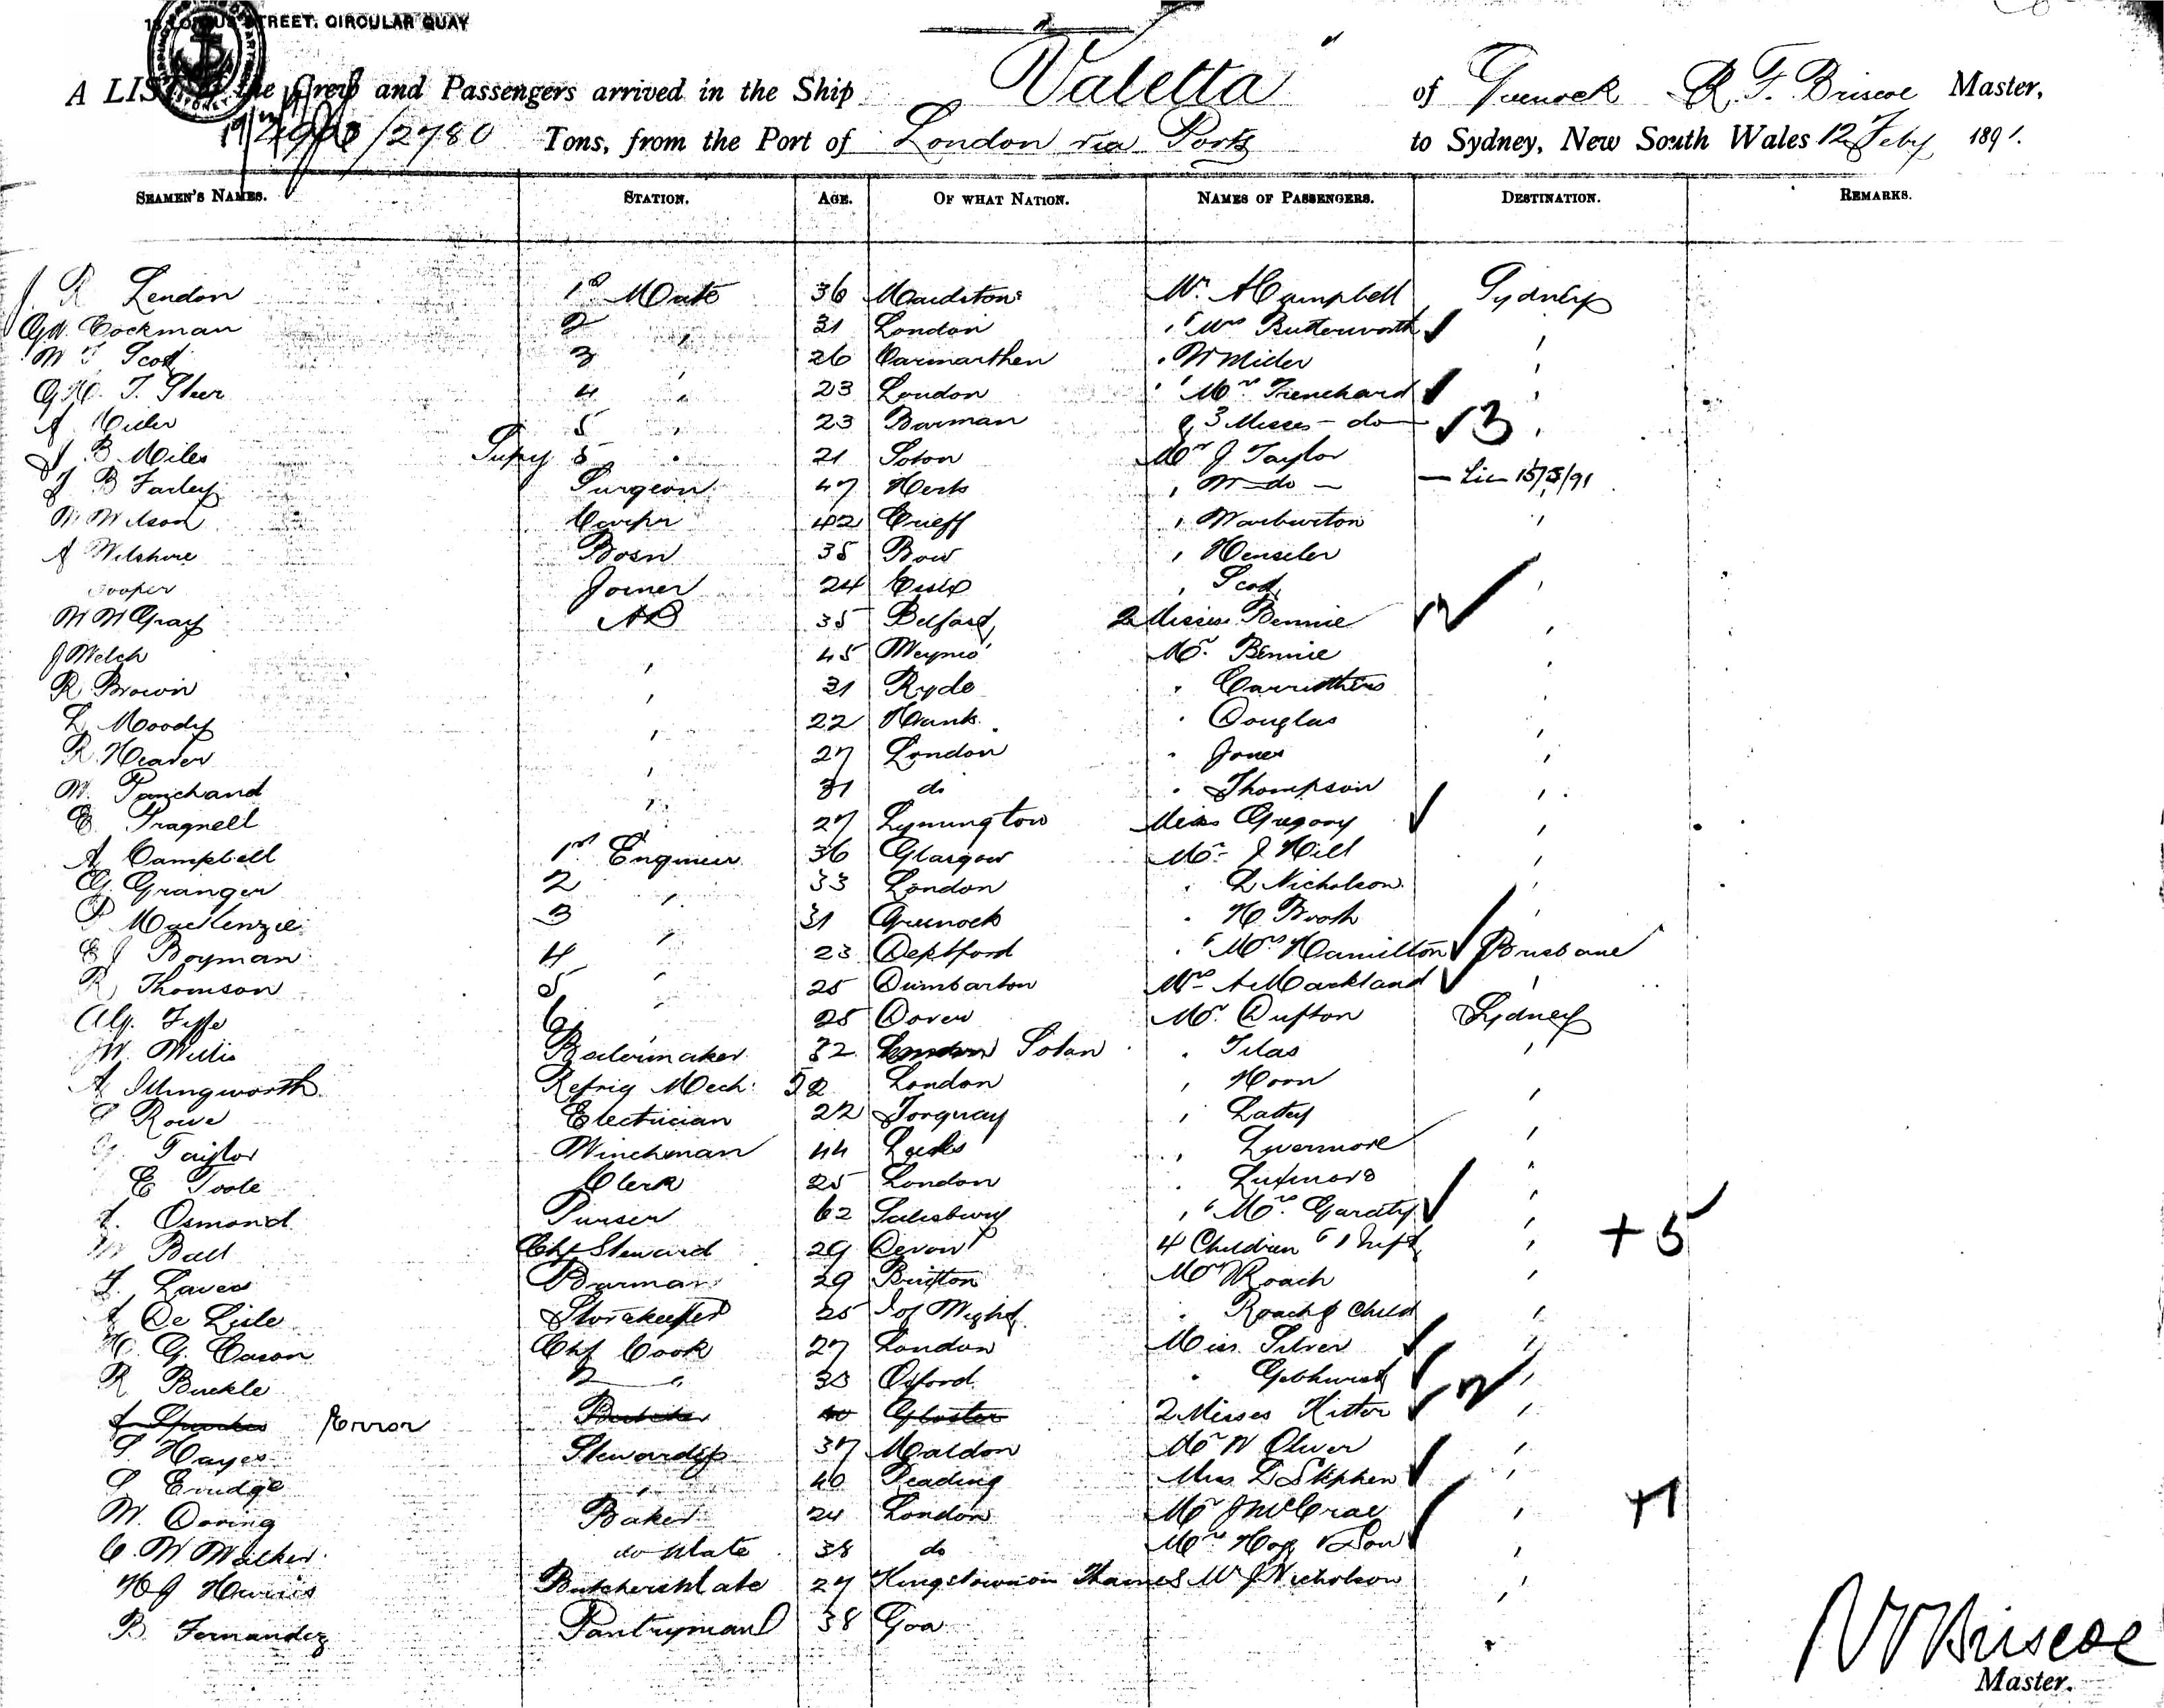 STREET, CIRCULAR QUAY
A LIST of the Crew and Passengers arrived in the Ship Valetta of Greenock R. F. Briscoe Master,
/2780 Tons, from the Port of London via Ports to Sydney, New South Wales 12 Feby 1891.
SEAMEN'S NAMES. STATION. AGE. OF WHAT NATION. NAMES OF PASSENGERS. DESTINATION. REMARKS.
R Lendon 1st Mate 36 Maidstone Mr A Campbell Sydney
Cockman 2 " 31 London " & Mrs Butterworth "
W Scott 3 26 Carmarthen " W Miller "
T. Steer 4 " 23 London " & Mrs Trenchard "
A Miller 5 " 23 Barman & 3 Misses - do - 3 "
J B Miles Supy 5 " 21 Soton Mr J Taylor
J B Farley Surgeon 47 Herts " do - Lic 15/3/91
W Wilson Carpr 42 Crieff " Warburton "
A Wilshire Bosn 38 Bow " Henseler
Cooper Joiner 24 " Scott "
W M Gray AB 35 Belfast 2 Misses Bennie 2 "
J Welch " 45 Mr. Bennie "
R Brown " 31 Ryde " Carruthers "
L Moody " 22 Hants. " Douglas "
R. Heaver " 27 London " Jones "
W. Panchand " 31 do " Thompson "
E. Fragnell " 27 Lymington Miss Gregory "
A Campbell 1st Engineer 36 Glasgow Mr J Hill "
G. Granger 2 " 33 London " L Nicholson "
P MacKenzie 3 " 31 Greenock " H Booth "
E J Boyman 4 " 23 Deptford " & Mrs Hamilton Brisbane
R Thomson 5 " 25 Dumbarton Mrs A Markland "
Alf. Fyffe 6 25 Dover Mr. Dufton Sydney
W. Willis Boilermaker 32 Soton " Silas "
A Illingworth Refrig Mech. London " Horn "
S Rowe Electrician 22 Torquay " Lattey
G. Taylor Winchman 44 Leeds " Livermore "
E Toole Clerk 25 London " Luxmore "
F. Osmond Purser 62 Salisbury " & Mrs Garaty "
W Ball Chf Steward 29 Devon 4 Children & 1 Inft " + 5
F. Laver Barman 29 Brixton Mr Roach "
De Lisle Storekeeper 25 I of Wight " Roach & Child "
H. G. Cason Chf Cook 27 London Miss Silver "
R Buckle 2 " 33 Oxford " "
Error Butcher 40 Gloster 2 Misses Kitter 2 "
S. Hayes Stewardess 37 Maldon Mr W Oliver "
S Crudge " 40 Reading Miss D Stephen "
W. Doring Baker 24 London Mr J McCrae " +1
C. W Walker do Mate 38 do Mrs Hogg & Son "
H J Harris Butchers Mate 27 Kingstown on Thames Mr J Nicholson "
B. Fernandez Pantryman 38 Goa
Briscoe
Master.